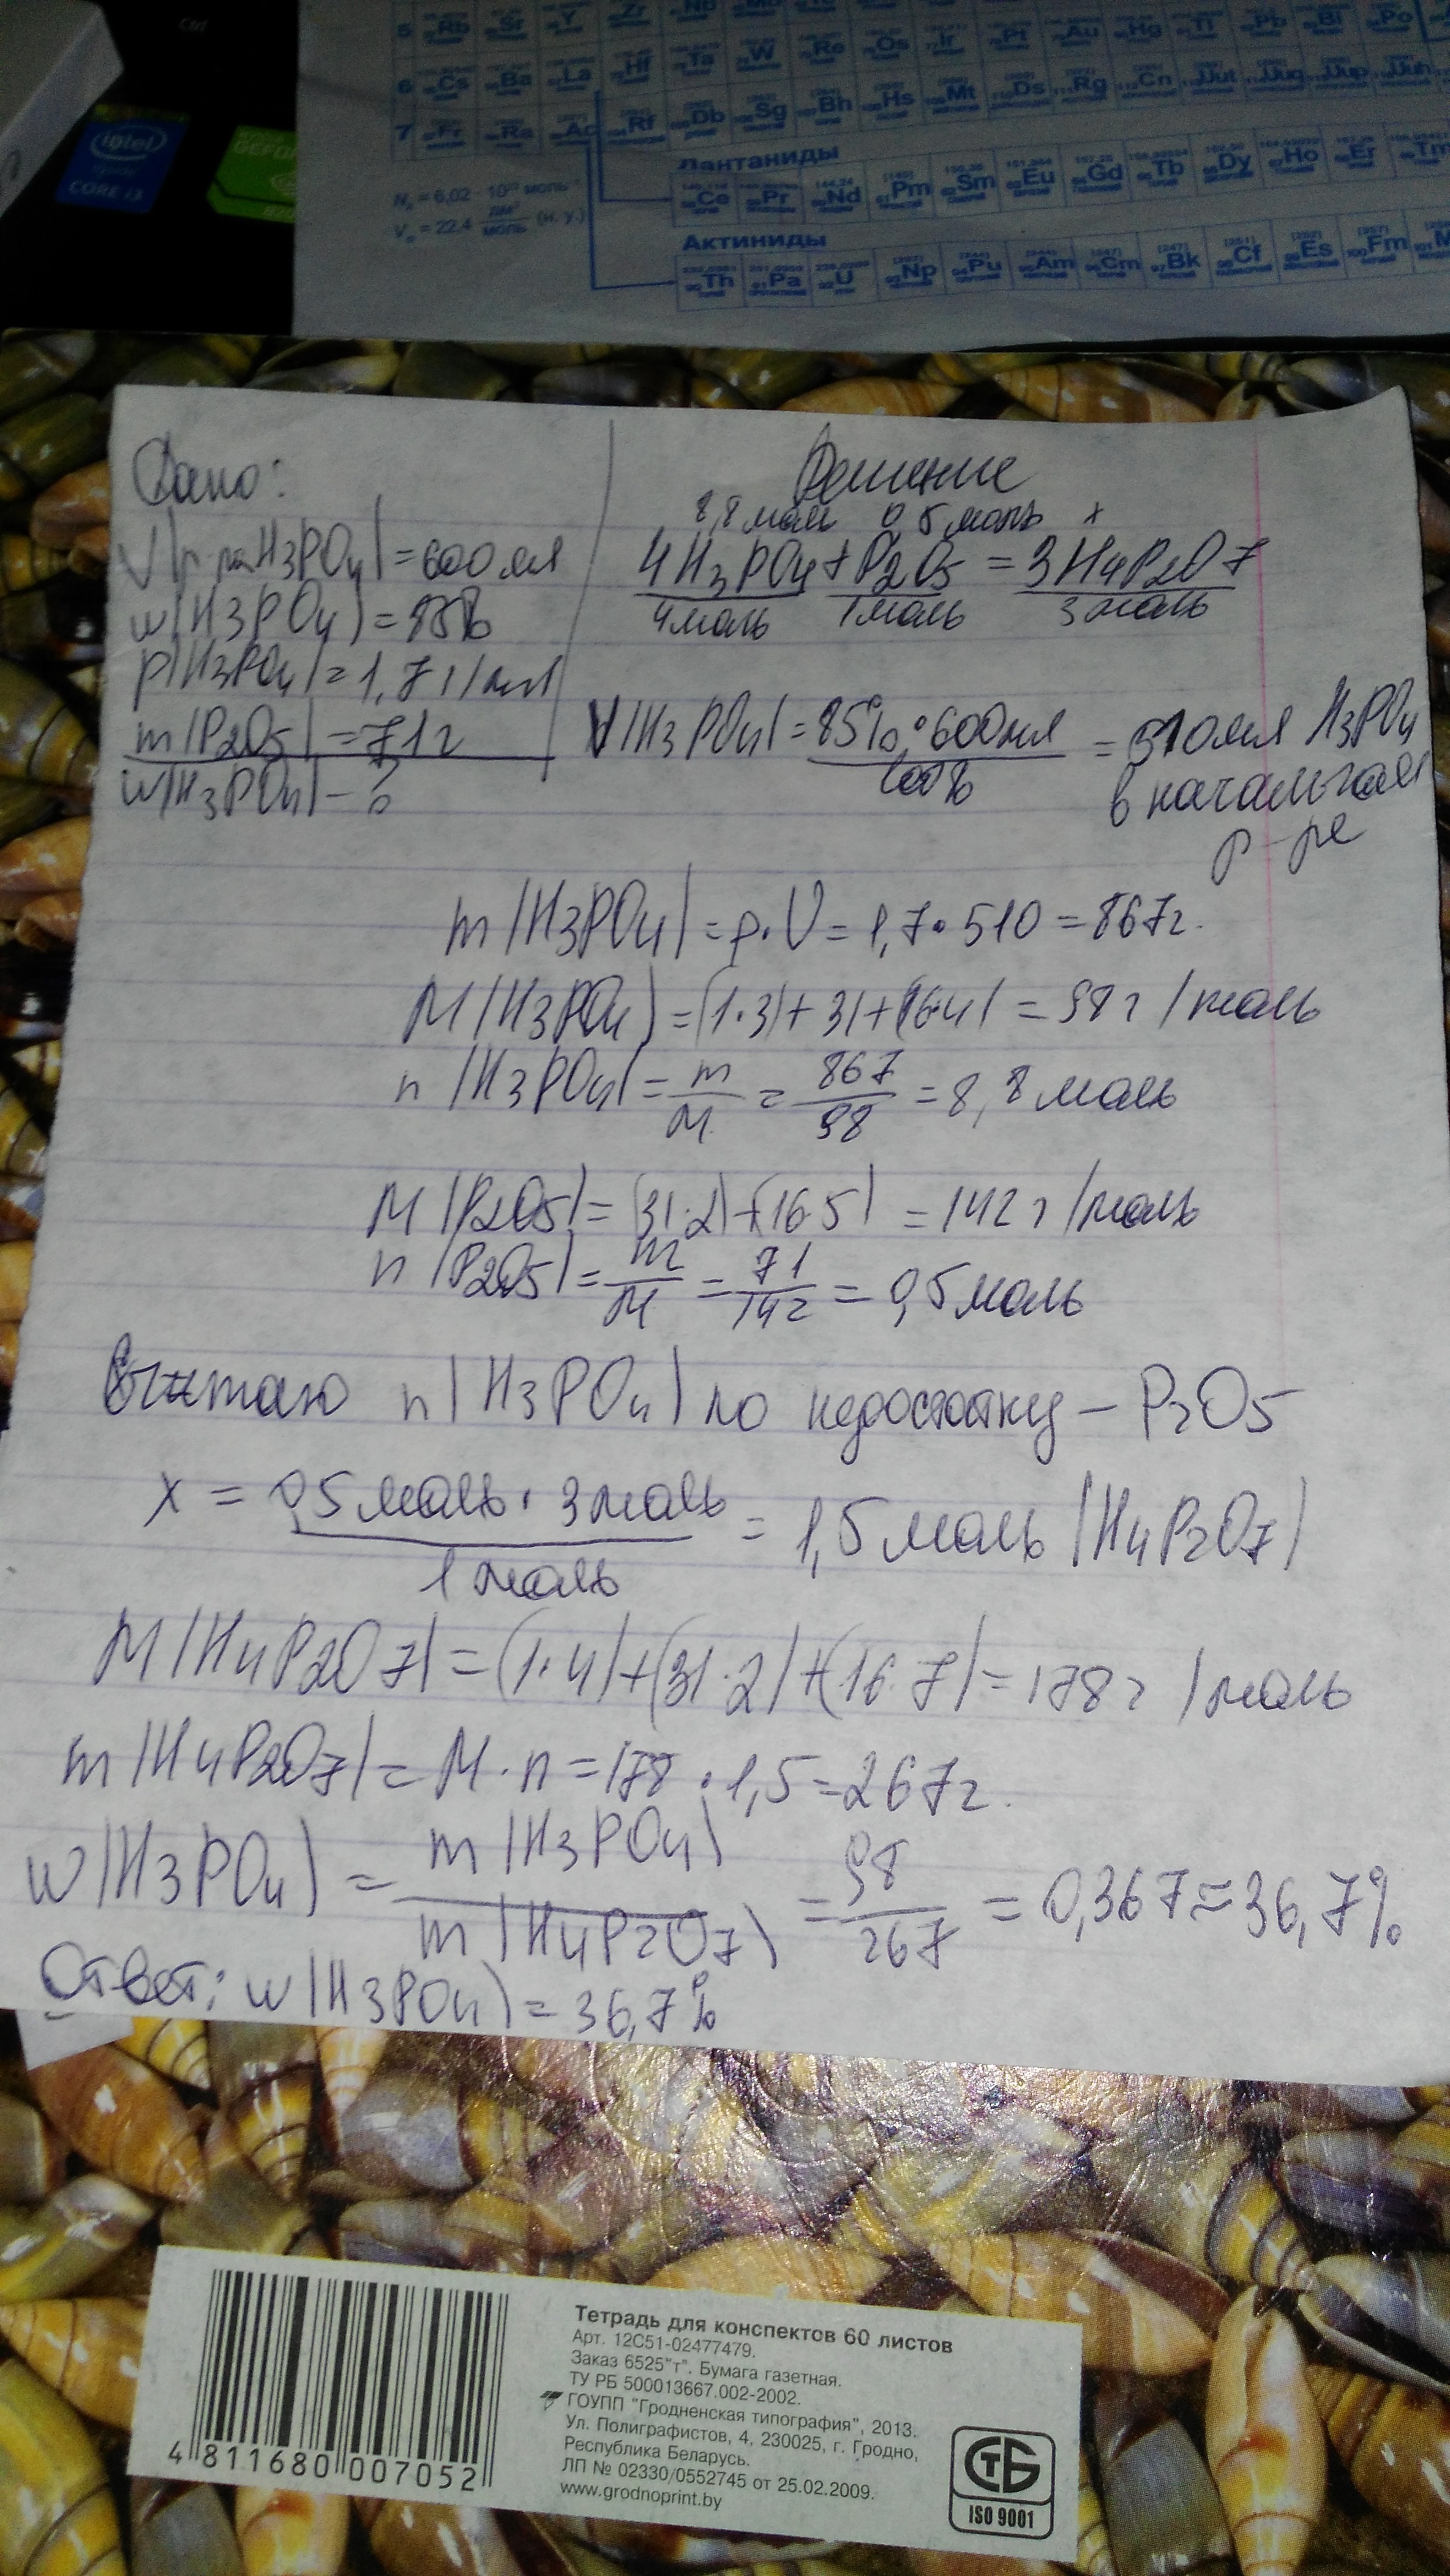 Ctrl
intel
inside
CORE i3
GEFOR
5 Rb Sr Y Zr Nb
6 Cs Ba La Hf Ta W Re Os Ir Pt Au Hg Tl Pb Bi Po
7 Fr Ra Ac Rf Db Sg Bh Hs Mt Ds Rg Cn Uut Uuq Uup Uuh
Лантаниды
Ce Pr Nd Pm Sm Eu Gd Tb Dy Ho Er Tm
Nₐ = 6,02 · 10²³ моль⁻¹
Vₘ = 22,4 дм³/моль (н. у.)
Актиниды
Th Pa U Np Pu Am Cm Bk Cf Es Fm M
Дано:
V(р-ра H3PO4) = 600 мл
w(H3PO4) = 85%
ρ(H3PO4) = 1,7 г/мл
m(P2O5) = 71 г
w(H3PO4) - ?
Решение
8,8 моль 0,5 моль x
4H3PO4 + P2O5 = 3H4P2O7
4 моль 1 моль 3 моль
V(H3PO4) = 85% · 600 мл / 100% = 510 мл H3PO4
в начальном
р-ре
m(H3PO4) = ρ · V = 1,7 · 510 = 867 г.
M(H3PO4) = (1·3) + 31 + (16·4) = 98 г/моль
n(H3PO4) = m/M = 867/98 = 8,8 моль
M(P2O5) = (31·2) + (16·5) = 142 г/моль
n(P2O5) = m/M = 71/142 = 0,5 моль
Считаю n(H3PO4) по недостатку - P2O5
x = 0,5 моль · 3 моль / 1 моль = 1,5 моль (H4P2O7)
M(H4P2O7) = (1·4) + (31·2) + (16·7) = 178 г/моль
m(H4P2O7) = M · n = 178 · 1,5 = 267 г.
w(H3PO4) = m(H3PO4) / m(H4P2O7) = 98/267 = 0,367 ≈ 36,7%
Ответ: w(H3PO4) = 36,7%
Тетрадь для конспектов 60 листов
Арт. 12С51-02477479.
Заказ 6525"т". Бумага газетная.
ТУ РБ 500013667.002-2002.
ГОУПП "Гродненская типография", 2013.
Ул. Полиграфистов, 4, 230025, г. Гродно,
Республика Беларусь.
ЛП № 02330/0552745 от 25.02.2009.
www.grodnoprint.by
4 811680 007052
СТБ
ISO 9001